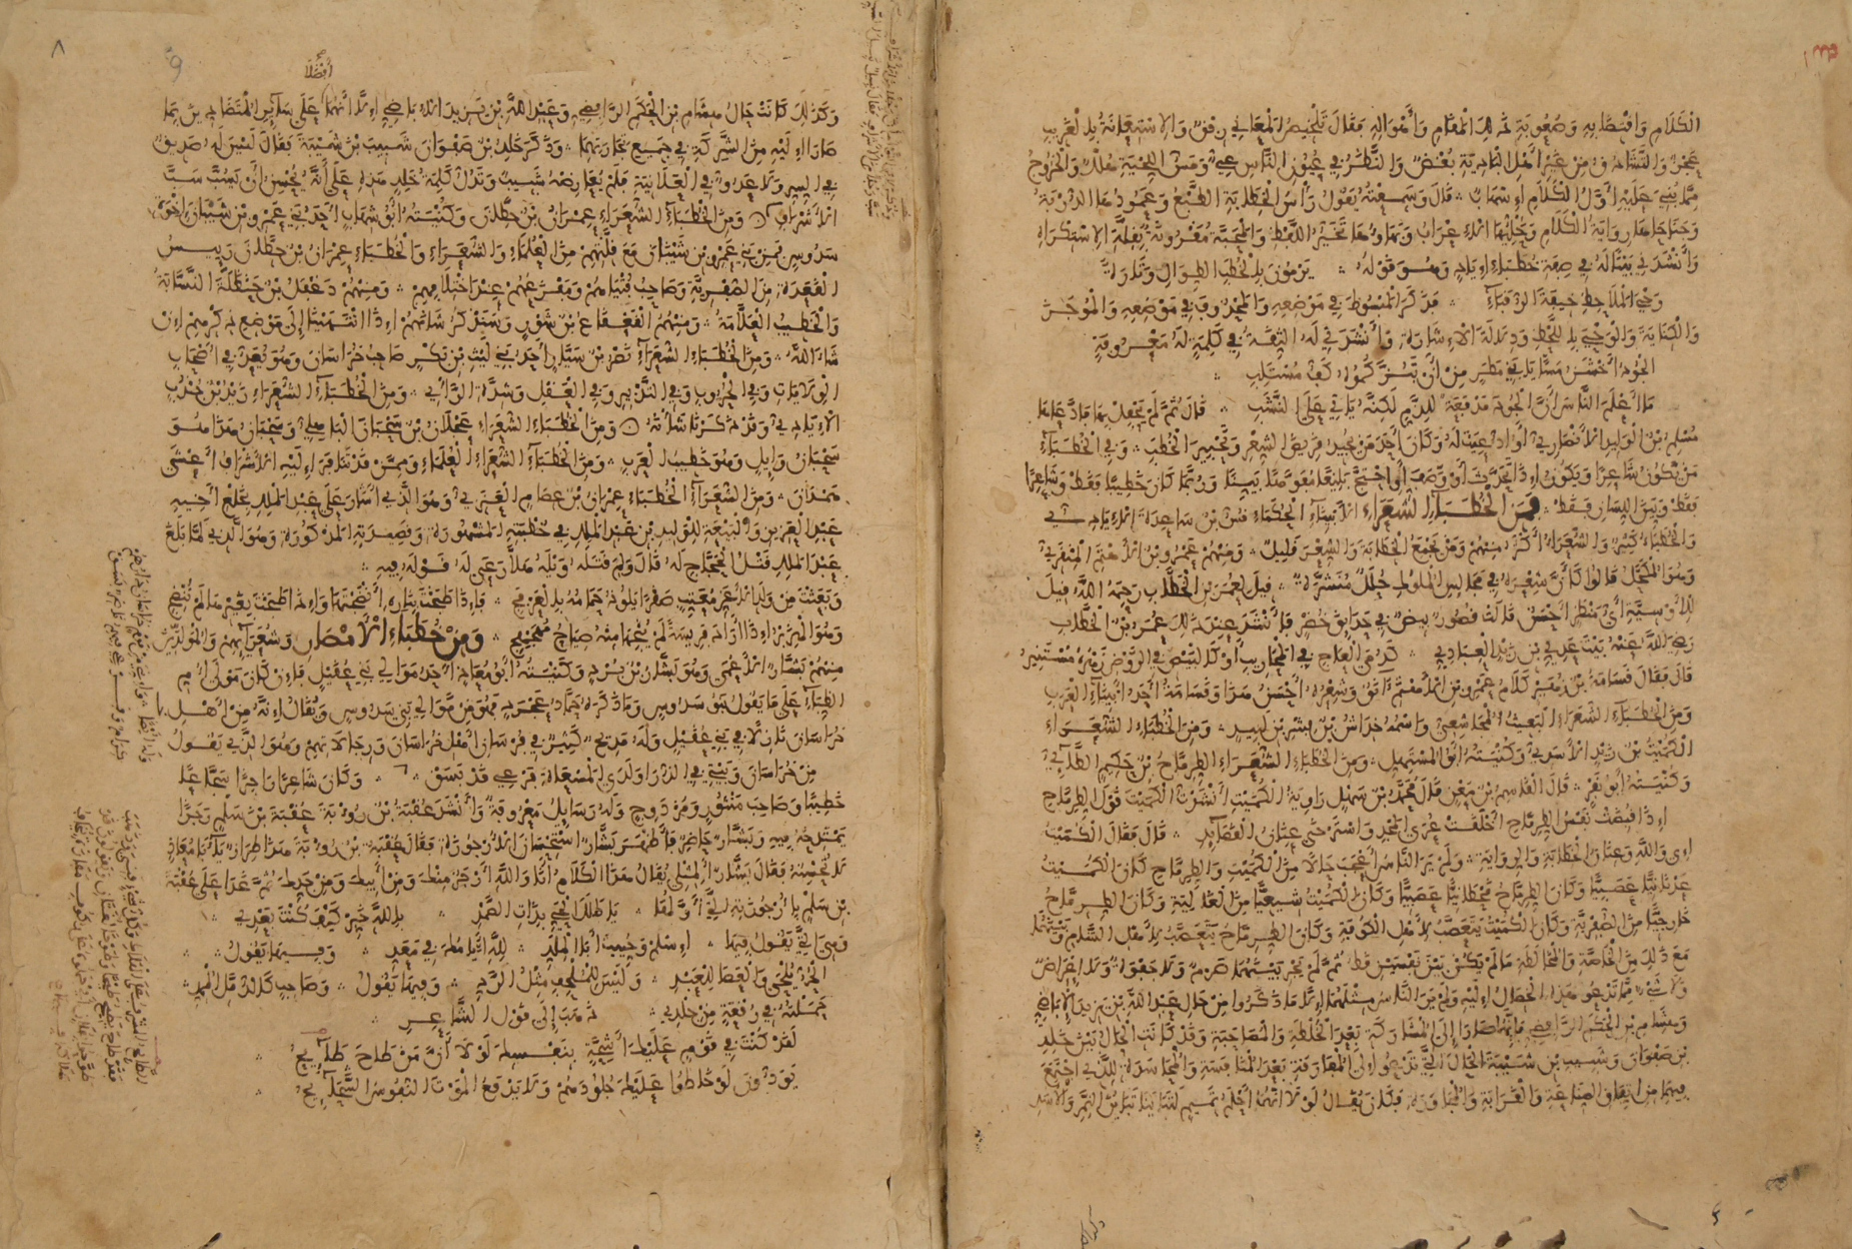 الكلام واقتضابه وصعوبة ذلك المقام وأهواله فقال تلخيص المعاني رفق والاستعانة بالغريب
عجز والتشادق من غير أهل البادية بغض والنظر في عيون الناس عي ومس اللحية هلك والخروج
مما بني عليه أول الكلام إسهاب قال وسمعته يقول رأس الخطابة الطبع وعمودها الدربة
وجناحاها رواية الكلام وحليها الإعراب وبهاؤها تخير اللفظ والمحبة مقرونة بقلة الاستكراه
وأنشدني بيتا له في صفة خطباء إياد وهو قوله يرمون بالخطب الطوال وتارة
وحي الملاحظ خيفة الرقباء فذكر المبسوط في موضعه والمحذوف في موضعه والموجز
والكناية والوحي باللحظ ودلالة الإشارة وأنشدني له الثقة في كلمة له معروفة
الجود أخشن مسا يا بني مطر من أن تبزكموه كف مستلب
ما أعلم الناس أن الجود مدفعة للذم لكنه يأتي على النشب قال ثم لم يحفل بها فادعاها
مسلم بن الوليد الأنصاري أو ادعيت له وكان أحد من يجيد قريض الشعر وتحبير الخطب وفي الخطباء
من يكون شاعرا ويكون إذا تحدث أو وصف أو احتج بليغا مفوها بينا وربما كان خطيبا فقط وشاعرا
فقط وبين اللسان فقط فمن الخطباء الشعراء الأبيناء الحكماء قس بن ساعدة الإيادي
والخطباء كثير والشعراء أكثر منهم ومن يجمع الخطابة والشعر قليل ومنهم عمرو بن الأهتم المنقري
وهو المكحل قالوا كأن شعره في مجالس الملوك حلل منشرة قيل لعمر بن الخطاب رحمه الله قيل
للأوسية أي منظر أحسن قالت قصور بيض في حدائق خضر فأنشد عند ذلك عمر بن الخطاب
رضي الله عنه بيت عدي بن زيد العبادي كدمى العاج في المحاريب أو كالبيض في الروض زهره مستنير
قال فقال قسامة بن زهير كلام عمرو بن الأهتم آنق وشعره أحسن هذا وقسامة أحد أبيناء العرب
ومن الخطباء الشعراء البعيث المجاشعي واسمه خداش بن بشر بن لبيد ومن الخطباء الشعراء
الكميت بن زيد الأسدي وكنيته أبو المستهل ومن الخطباء الشعراء الطرماح بن حكيم الطائي
وكنيته أبو نفر قال القاسم بن معن قال محمد بن سهل راوية الكميت أنشدت الكميت قول الطرماح
إذا قبضت نفس الطرماح أخلقت عرى المجد واسترخى عنان القصائد قال فقال الكميت
إي والله وعنان الخطابة والرواية ولم ير الناس أعجب حالا من الكميت والطرماح كان الكميت
عدنانيا عصبيا وكان الطرماح قحطانيا عصبيا وكان الكميت شيعيا من الغالية وكان الطرماح
خارجيا من الصفرية وكان الكميت يتعصب لأهل الكوفة وكان الطرماح يتعصب لأهل الشام وبينهما
مع ذلك من الخاصة والمخالطة ما لم يكن بين نفسين قط ثم لم يجر بينهما صرم ولا جفوة ولا إعراض
ولا شيء مما تدعو هذه الخصال إليه ولم ير الناس مثلهما إلا ما ذكروا من حال عبد الله بن يزيد الإباضي
وهشام بن الحكم الرافضي فإنهما صارا إلى المشاركة بعد الخلطة والمصاحبة وقد كانت الحال بين خلد
بن صفوان وشبيب بن شيبة الحال التي تدعو إلى المفارقة بعد المنافسة والمحاسدة للذي اجتمع
فيهما من اتفاق الصناعة والقرابة والمجاورة فكان يقال لولا أنهما أحلم تميم لتباينا تباين النمر والأسد
وكذلك كانت حال هشام بن الحكم الرافضي وعبد الله بن يزيد الإباضي إلا أنهما أفضلا على سائر المتضادين بما
صارا إليه من الشركة في جميع تجارتهما وذكر خلد بن صفوان شبيب بن شيبة فقال ليس له صديق
في السر ولا عدو في العلانية فلم يعارضه شبيب وتدل كلمة خلد هذه على أنه يحسن أن يسب سب
الأشراف ومن الخطباء الشعراء عمران بن حطان وكنيته أبو شهاب أحد بني عمرو بن شيبان إخوة
سدوس فمن بني عمرو بن شيبان مع قلتهم من العلماء والشعراء والخطباء عمران بن حطان رئيس
القعدة من الصفرية وصاحب فتياهم ومفزعهم عند اختلافهم ومنهم دغفل بن حنظلة النسابة
والخطيب العلامة ومنهم القعقاع بن شور وسنذكر شأنهم إذا انتهينا إلى موضع ذكرهم إن
شاء الله ومن الخطباء الشعراء نصر بن سيار أحد بني ليث بن بكر صاحب خراسان وهو يعد في أصحاب
الولايات وفي الحروب وفي التدبير وفي العقل وشدة الرأي ومن الخطباء الشعراء زيد بن جندب
الإيادي وقد ذكرنا شأنه ومن الخطباء الشعراء عجلان بن سحبان الباهلي وسحبان هذا هو
سحبان وائل وهو خطيب العرب ومن الخطباء الشعراء العلماء وممن قد تنافر إليه الأشراف أعشى
همدان ومن الشعراء الخطباء عمران بن عصام العنزي وهو الذي أشار على عبد الملك بخلع أخيه
عبد العزيز والبيعة للوليد بن عبد الملك في خطبته المشهورة وقصيدته المذكورة وهو الذي لما بلغ
عبد الملك قتل الحجاج له قال ولم قتله ويله هلا رعى له قوله فيه
وبعثت من ولد الأغر معتب صقرا يلوذ حمامه بالعرفج فإذا طبخت بناره أنضجتها وإذا طبخت بغيرها لم تنضج
وهو الهزبر إذا أراد فريسة لم ينجها منه صياح مهجهج ومن خطباء الأمصار وشعرائهم والمولدين
منهم بشار الأعمى وهو بشار بن برد وكنيته أبو معاذ أحد موالي بني عقيل فإن كان مولى أم
الظباء على ما يقول بنو سدوس وما ذكره حماد عجرد فهو من موالي بني سدوس ويقال إنه من أهل
خراسان نازلا في بني عقيل وله مديح كثير في فرسان أهل خراسان ورجالاتهم وهو الذي يقول
من خراسان وبيتي في الذرا ولدى المسعاة فرعي قد بسق وكان شاعرا راجزا سجاعا
خطيبا وصاحب منثور ومزدوج وله رسائل معروفة وأنشد عقبة بن رؤبة عقبة بن سلم رجزا
يمتدحه فيه وبشار حاضر فأظهر بشار استحسان الأرجوزة فقال عقبة بن رؤبة هذا طراز يا أبا معاذ
لا تحسنه فقال بشار ألمثلي يقال هذا الكلام أنا والله أرجز منك ومن أبيك ومن جدك ثم غدا على عقبة
بن سلم بأرجوزته التي أولها يا طلل الحي بذات الصمد بالله خبر كيف كنت بعدي
وهي التي يقول فيها اسلم وحييت أبا الملد لله أيامك في معد وفيها يقول
الحر يلحى والعصا للعبد وليس للملحف مثل الرد وفيها يقول وصاحب كالدمل الممد
حملته في رقعة من جلدي ذهب إلى قول الشاعر
لقد كنت في قوم عليك أشحة بنفسك لولا أن من طاح طائح
يودون لو خاطوا عليك جلودهم ولا يدفع الموت النفوس الشحائح